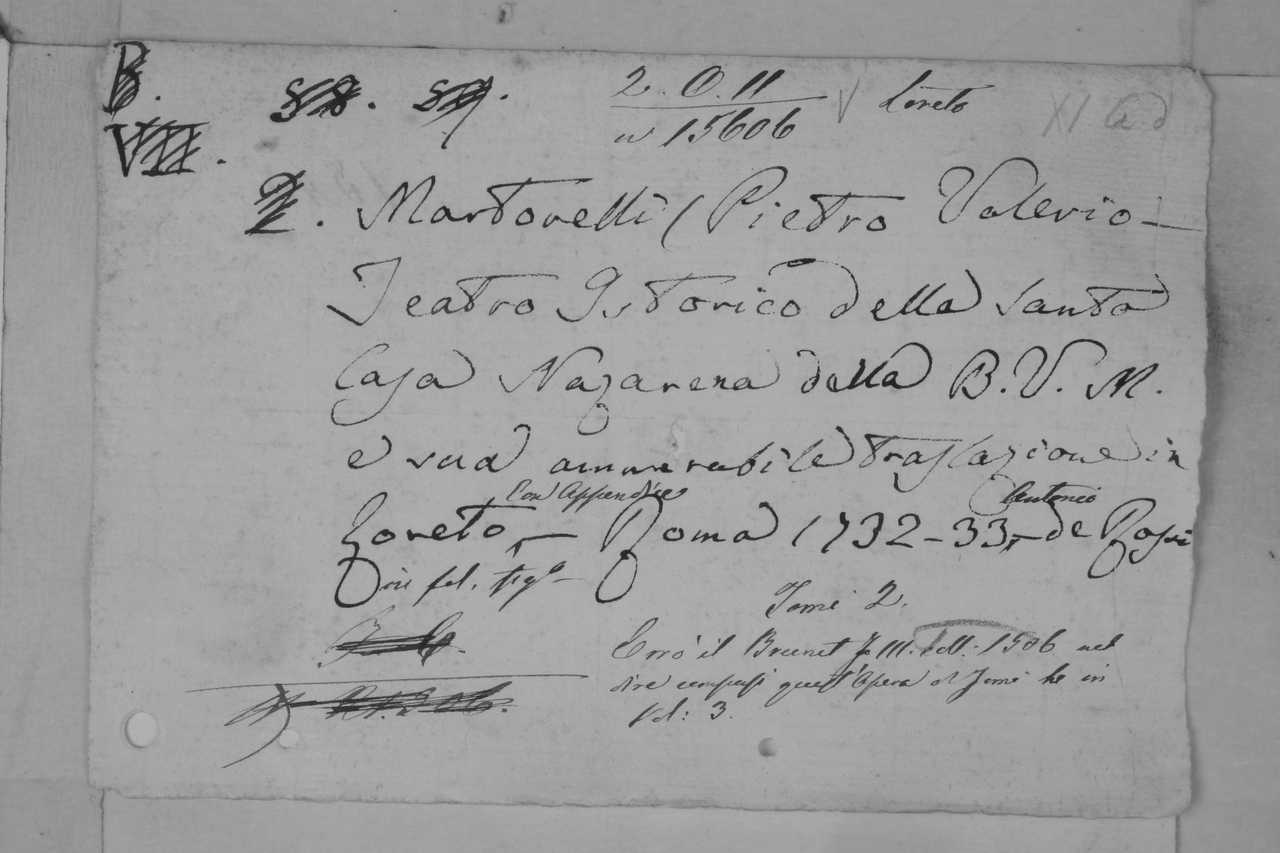 B.
VIII.
2. O. 11 Loreto XI a d
a 15606
2. Martorelli ( Pietro Valerio -
Teatro Istorico della Santa
Casa Nazarena della B. V. M.
e sua ammirabile traslazione in
Con Appendice Antonio
Loreto, - Roma 1732-33, - de Rossi
in fol. fig°
Tomi 2.
Errò il Brunet T. III. 1506 nel
dire quest'Opera di Tomi tre in
Vol: 3.